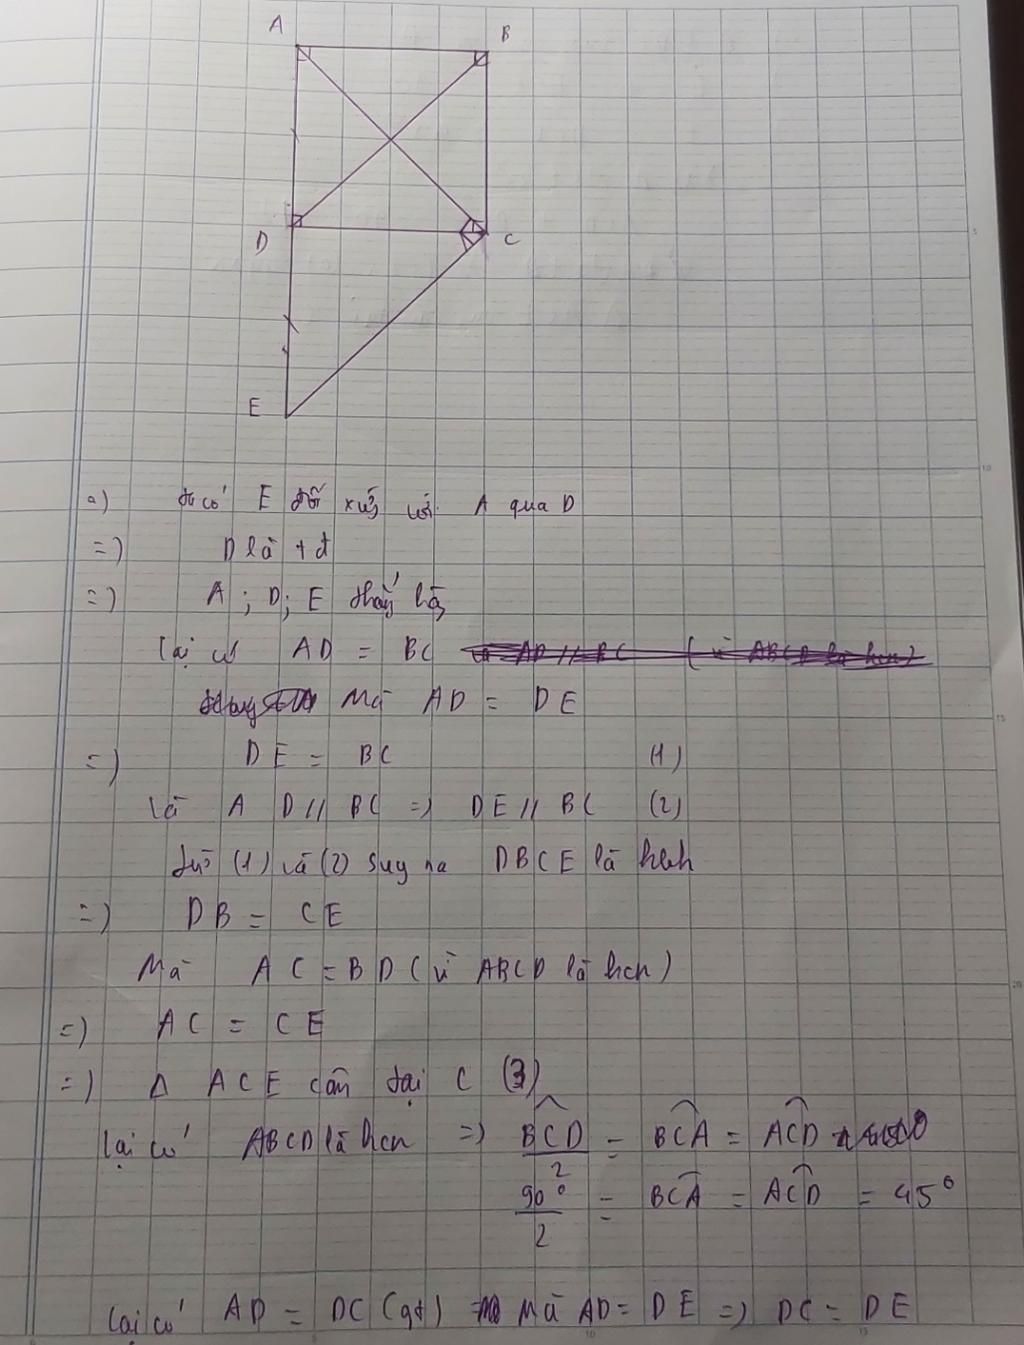 A
B
D
C
E
a) ta có E đối xứng với A qua D
=) D là tđ
=) A ; D ; E thẳng hàng
Lại có AD = BC
Mà AD = DE
=) DE = BC (1)
Là AD // BC =) DE // BC (2)
từ (1) và (2) suy ra DBCE là hbh
=) DB = CE
Mà AC = BD (vì ABCD là hcn)
=) AC = CE
=) Δ ACE cân tại C (3)
Lại có ABCD là hcn =) BCD/2 = BCA = ACD
90°/2 = BCA = ACD = 45°
Lại có AD = DC (gt) Mà AD = DE =) DC = DE